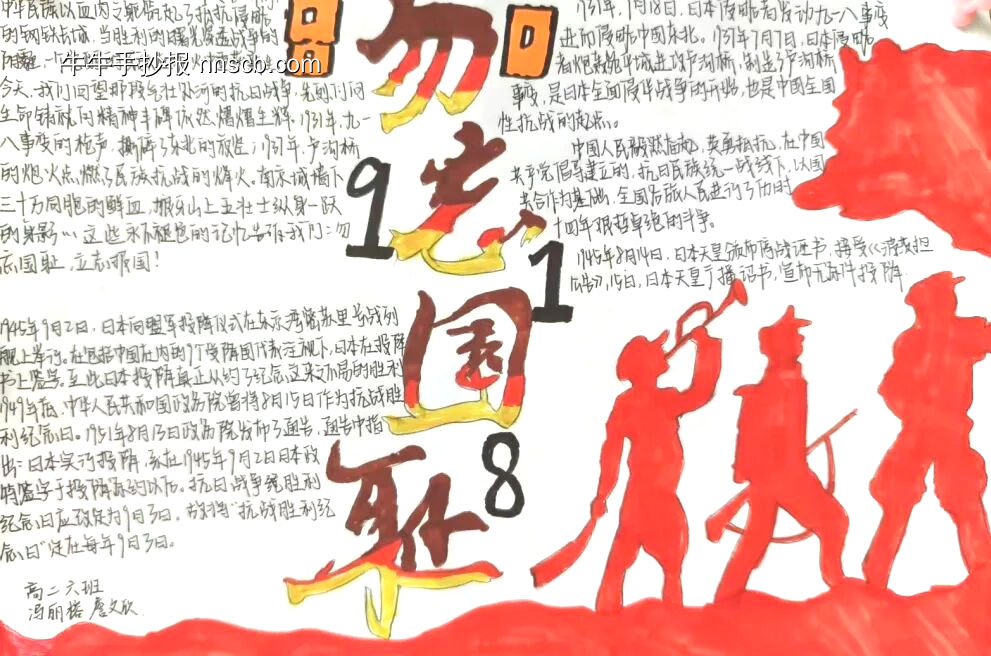 牛牛手抄报 nnscb.com
今天,我们回望那段气壮山河的抗日战争,先烈们用
生命铸就的精神丰碑依然熠熠生辉.1931年,九一
八事变的枪声,撕碎了东北的夜空;1937年,卢沟桥
的炮火点燃了民族抗战的烽火。南京城墙下
三十万同胞的鲜血,狼牙山上五壮士纵身一跃
的身影…这些永不褪色的记忆告诉我们:勿
忘国耻,立志报国!
1945年9月2日,日本向盟军投降仪式在东京湾密苏里号战列
舰上举行。在包括中国在内的9个受降国代表注视下,日本在投降
书上签字。至此日本投降真正从约了纪念这来之不易的胜利
1949年底,中华人民共和国政务院曾将8月15日作为抗战胜
利纪念日。1951年8月13日政务院发布了通告,通告中指
出:日本实行投降,系在1945年9月2日日本政
府签字于投降条约以后。抗日战争胜利
纪念日应改定为9月3日。故将"抗战胜利纪
念日"定在每年9月3日。
高二六班
勿忘国耻
9
1
8
1931年,9月18日,日本侵略者发动九一八事变
进而侵略中国东北。1937年7月7日,日本侵略
者炮轰宛平城进攻卢沟桥,制造了卢沟桥
事变,是日本全面侵华战争的开始,也是中国全国
性抗战的起点。
中国人民毅然奋起,英勇抵抗,在中国
共产党倡导建立的,抗日民族统一战线下,以国
共合作为基础,全国各族人民进行了历时
十四年艰苦卓绝的斗争。
1945年8月14日,日本天皇颁布停战诏书,接受《波茨坦
公告》,15日,日本天皇广播诏书,宣布无条件投降